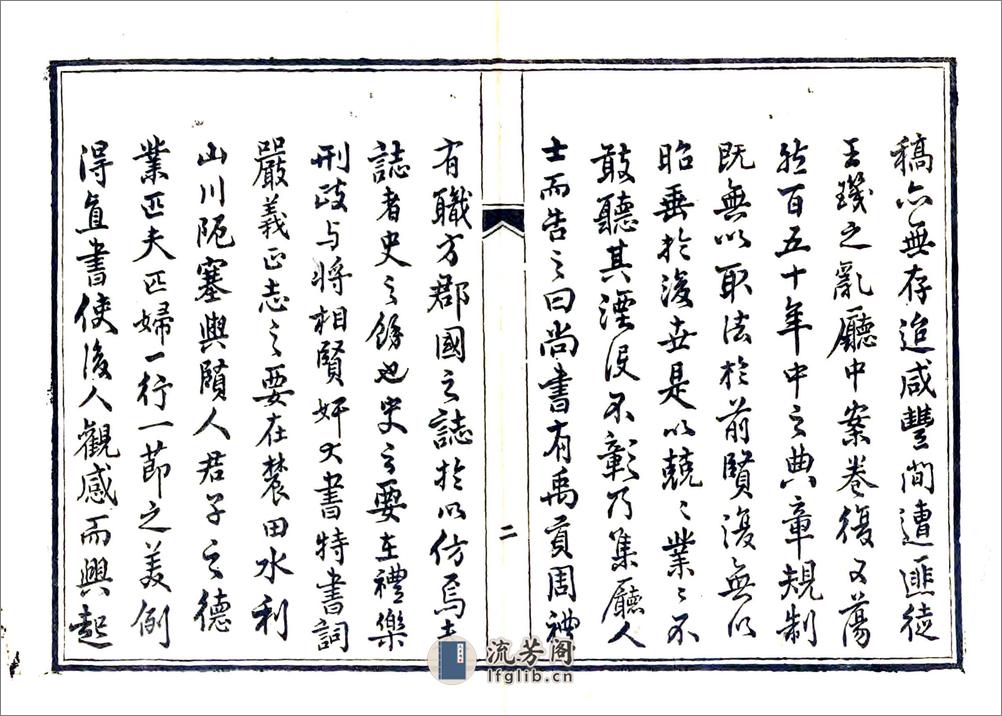 稿亦無存追咸豐間遭匪徒
王璣之亂廳中案卷復又蕩
然百五十年中之典章規制
既無以取法於前賢復無以
昭垂於後世是以兢〻業〻不
敢聽其湮沒不彰乃集廳人
士而告之曰尚書有禹貢周禮
二
有職方郡國之誌於以仿焉夫
誌者史之餘也史之要在禮樂
刑政与將相賢奸大書特書詞
嚴義正志之要在農田水利
山川阨塞與賢人君子之德
業匹夫匹婦一行一節之美例
得直書使後人觀感而興起
流芳阁
lfglib.cn